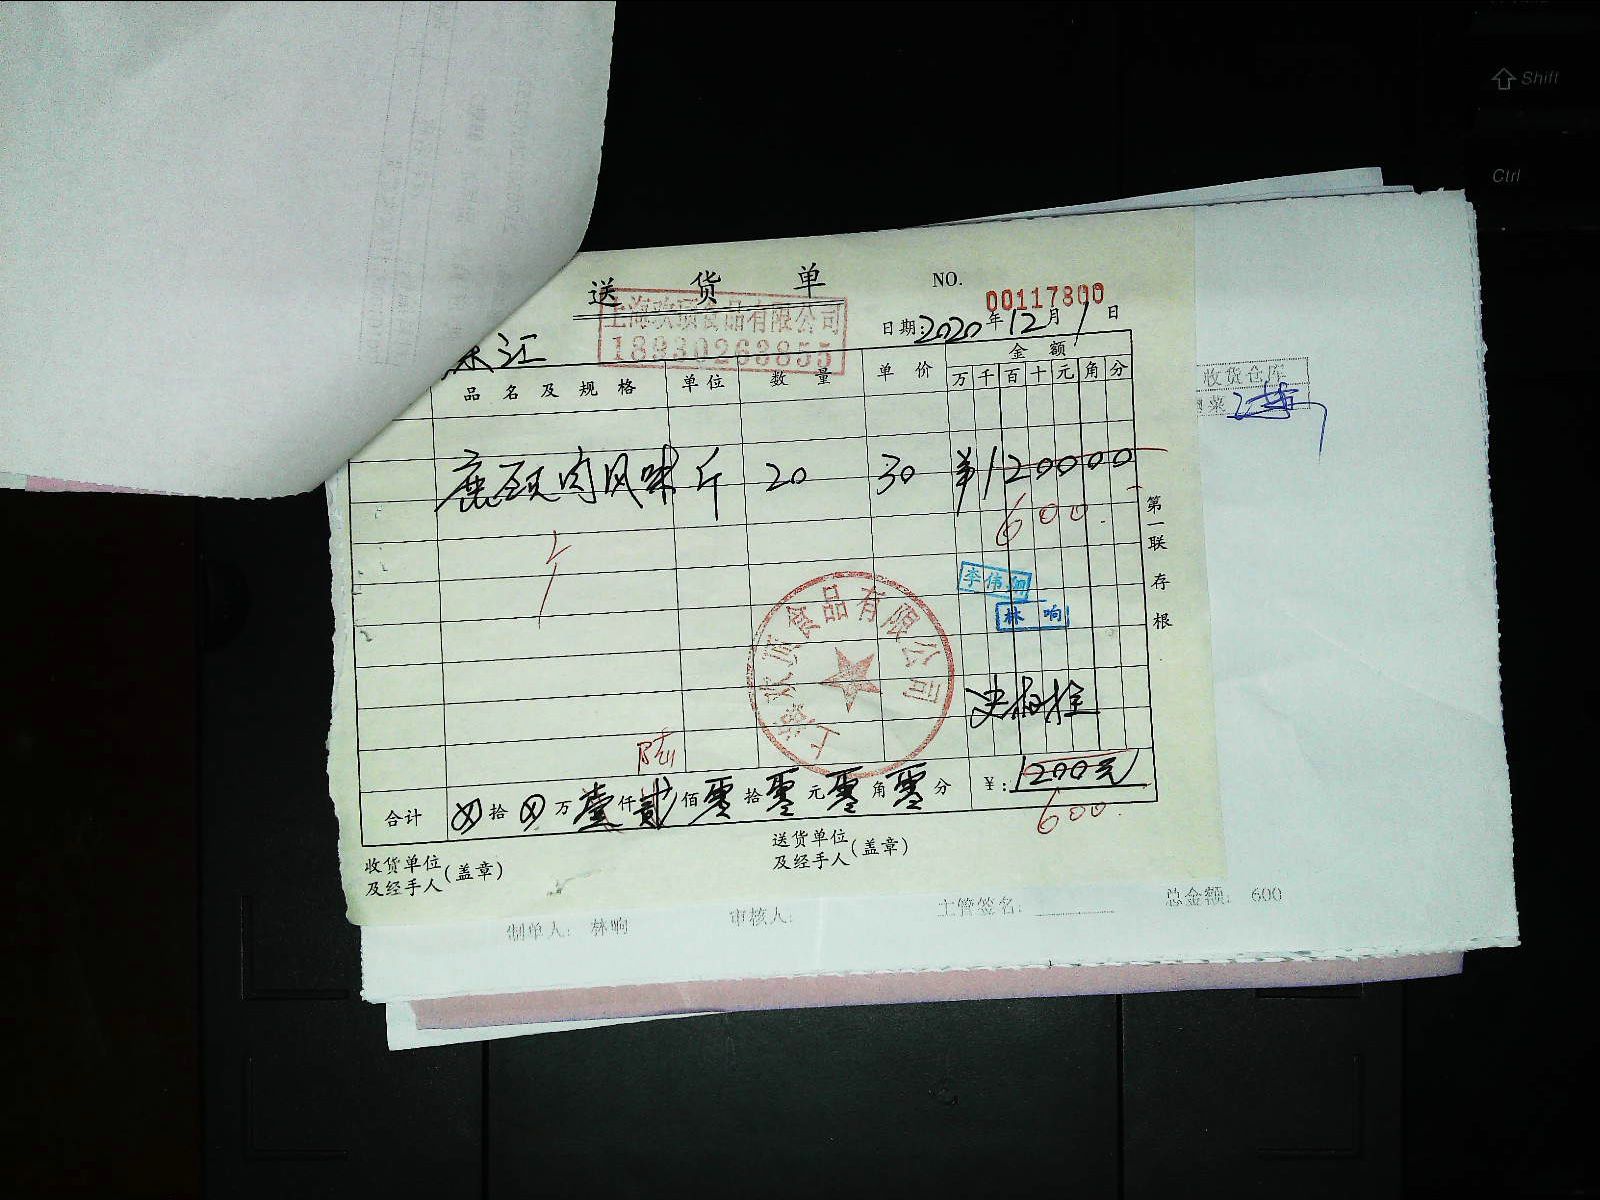 Shift
Ctrl
送货单
NO. 00117800
上海欢颀食品有限公司
18930263855
日期:2020年12月1日
江
品名及规格 单位 数量 单价 金额
万千百十元角分
收货仓库
菜
肉风味 斤 20 30 ¥120000
600
第一联存根
李伟
林响
上海欢颀食品有限公司
陆
合计 ⊗拾⊗万壹仟贰佰零拾零元零角零分 ¥:1200元
600.
收货单位及经手人(盖章)
送货单位及经手人(盖章)
制单人: 林响 审核人: 主管签名: 总金额: 600